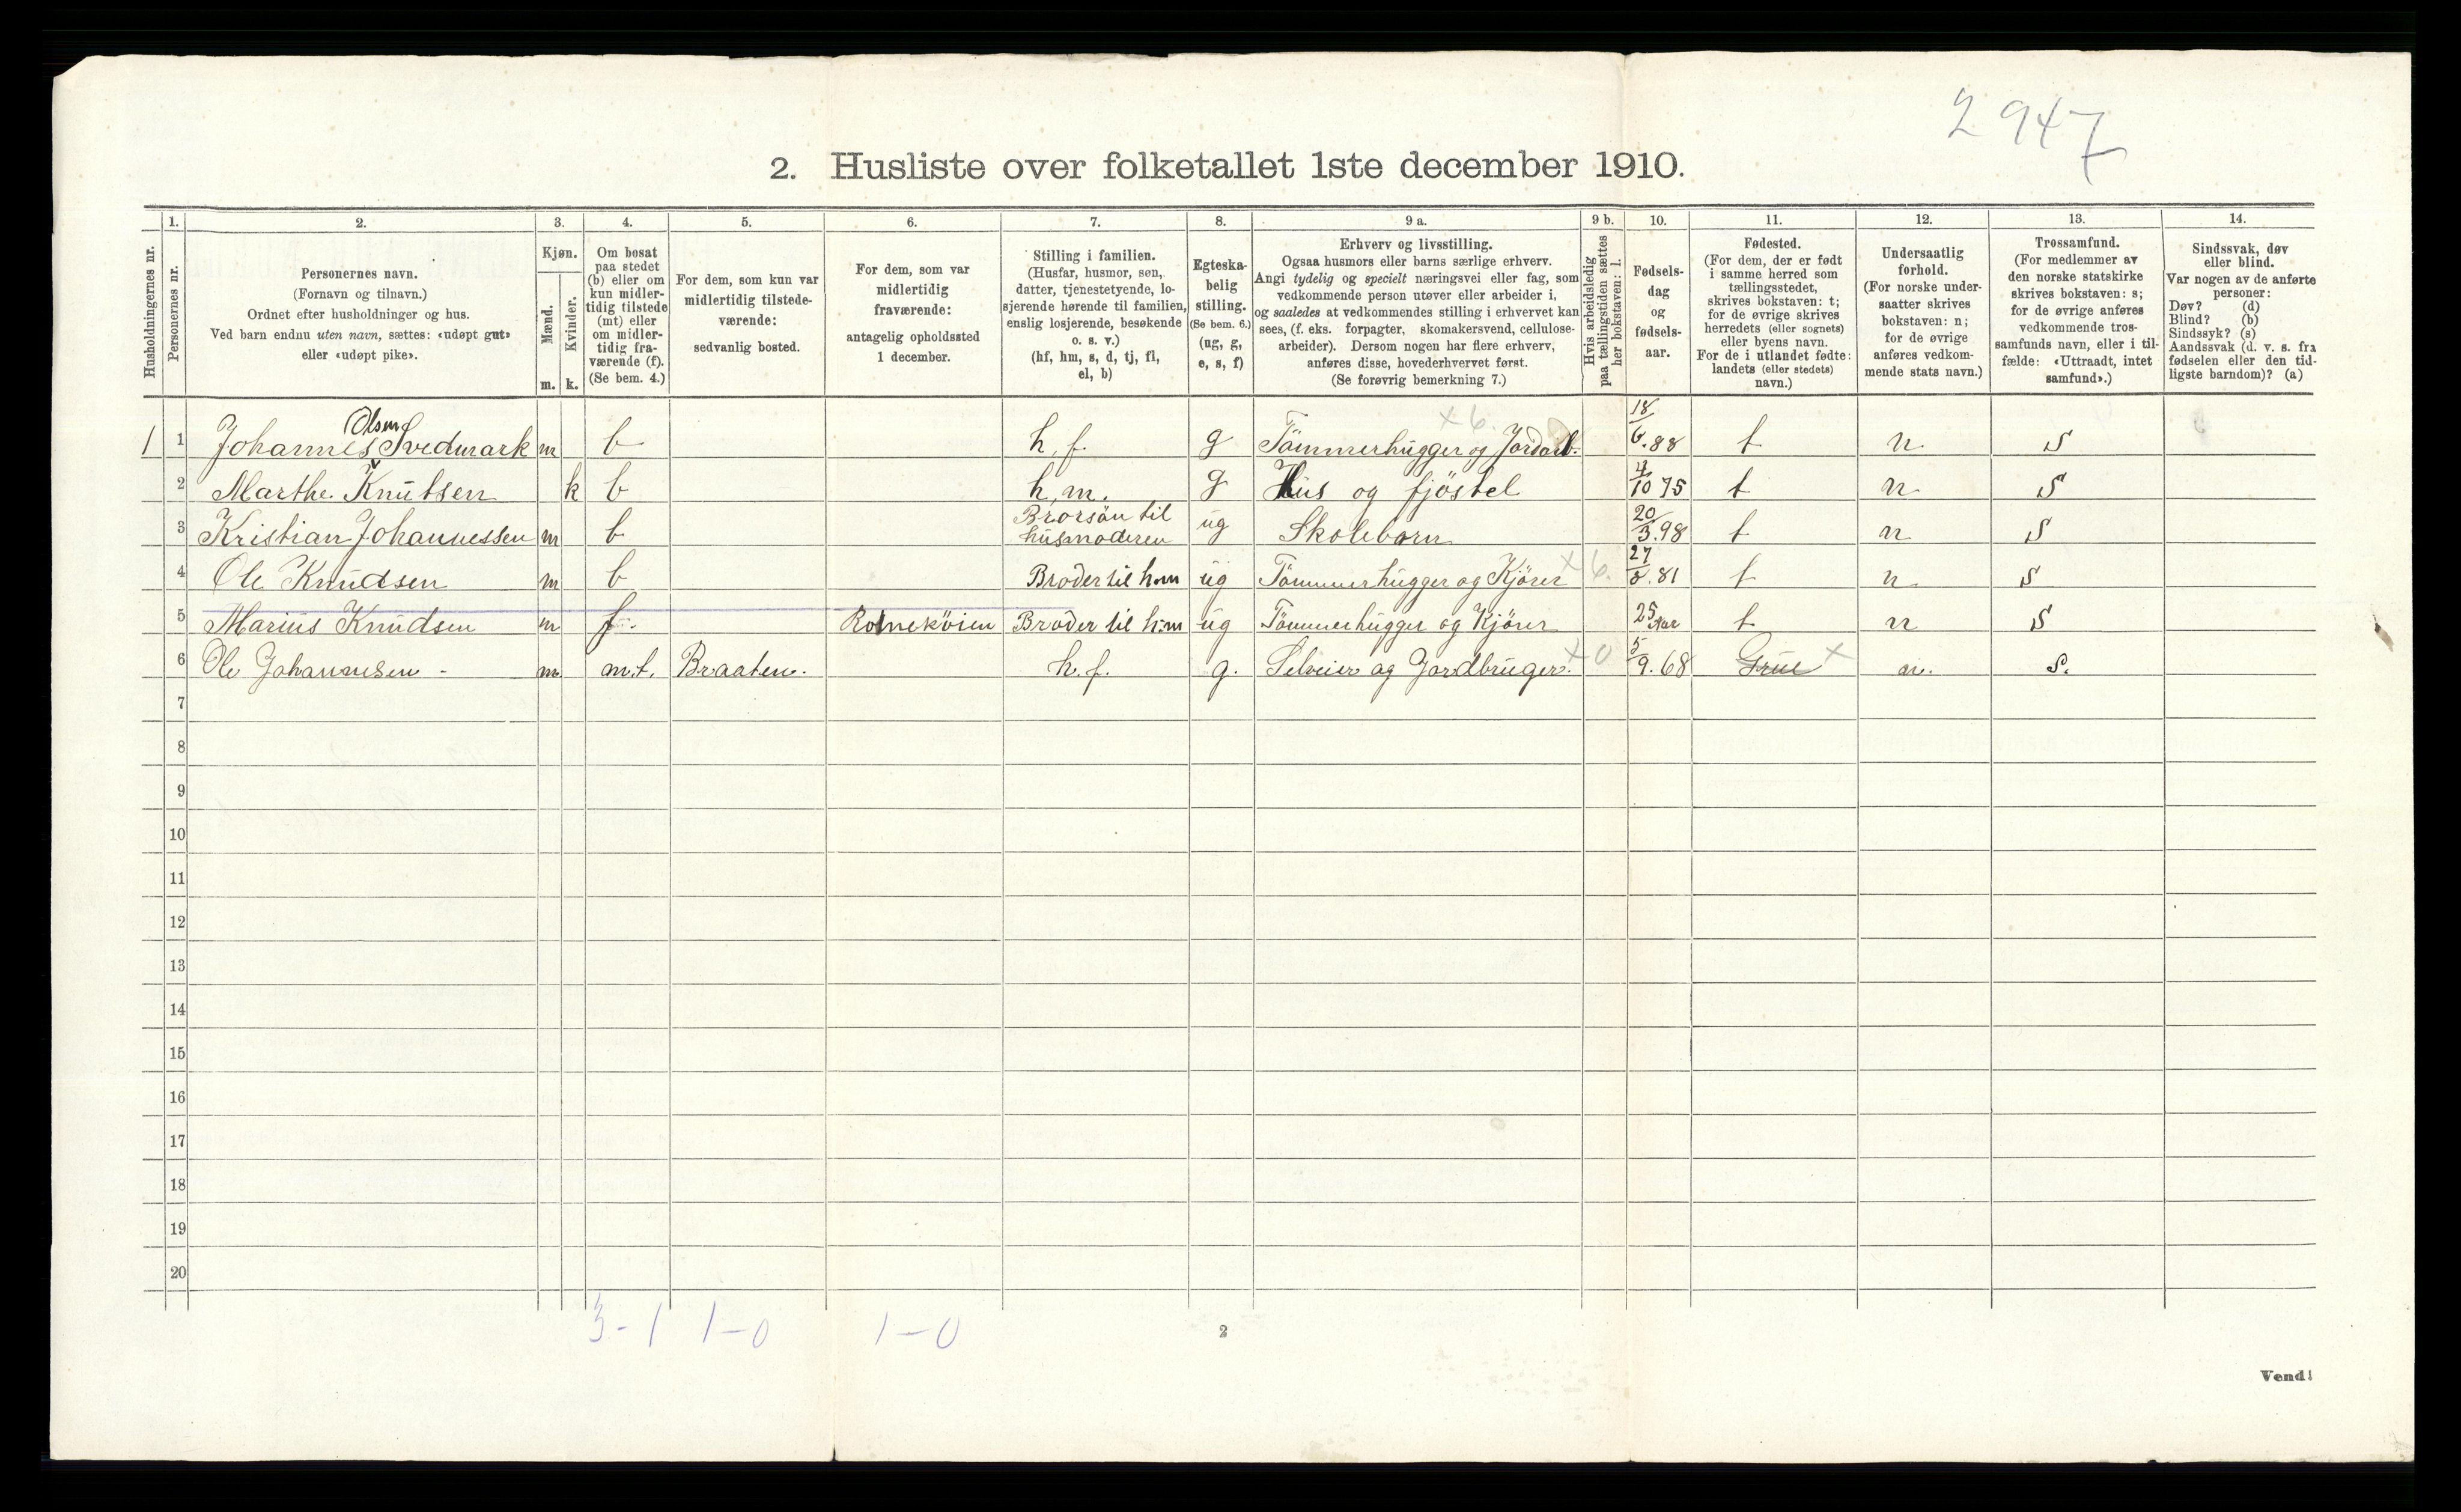 2947
2. Husliste over folketallet 1ste december 1910.
1. 2. 3. 4. 5. 6. 7. 8. 9 a. 9 b. 10. 11. 12. 13. 14.
Husholdningernes nr.
Personernes nr.
Personernes navn.
(Fornavn og tilnavn.)
Ordnet efter husholdninger og hus.
Ved barn endnu uten navn, sættes: «udøpt gut»
eller «udøpt pike».
Kjøn.
Mænd.
Kvinder.
m. k.
Om bosat
paa stedet
(b) eller om
kun midler-
tidig tilstede
(mt) eller
om midler-
tidig fra-
værende (f).
(Se bem. 4.)
For dem, som kun var
midlertidig tilstede-
værende:
sedvanlig bosted.
For dem, som var
midlertidig
fraværende:
antagelig opholdssted
1 december.
Stilling i familien.
(Husfar, husmor, søn,
datter, tjenestetyende, lo-
sjerende hørende til familien,
enslig losjerende, besøkende
o. s. v.)
(hf, hm, s, d, tj, fl,
el, b)
Egteska-
belig
stilling.
(Se bem. 6.)
(ug, g,
e, s, f)
Erhverv og livsstilling.
Ogsaa husmors eller barns særlige erhverv.
Angi tydelig og specielt næringsvei eller fag, som
vedkommende person utøver eller arbeider i,
og saaledes at vedkommendes stilling i erhvervet kan
sees, (f. eks. forpagter, skomakersvend, cellulose-
arbeider). Dersom nogen har flere erhverv,
anføres disse, hovederhvervet først.
(Se forøvrig bemerkning 7.)
Hvis arbeidsledig
paa tællingstiden sættes
her bokstaven: l.
Fødsels-
dag
og
fødsels-
aar.
Fødested.
(For dem, der er født
i samme herred som
tællingsstedet,
skrives bokstaven: t;
for de øvrige skrives
herredets (eller sognets)
eller byens navn.
For de i utlandet fødte:
landets (eller stedets)
navn.)
Undersaatlig
forhold.
(For norske under-
saatter skrives
bokstaven: n;
for de øvrige
anføres vedkom-
mende stats navn.)
Trossamfund.
(For medlemmer av
den norske statskirke
skrives bokstaven: s;
for de øvrige anføres
vedkommende tros-
samfunds navn, eller i til-
fælde: «Uttraadt, intet
samfund».)
Sindssvak, døv
eller blind.
Var nogen av de anførte
personer:
Døv? (d)
Blind? (b)
Sindssyk? (s)
Aandssvak (d. v. s. fra
fødselen eller den tid-
ligste barndom)? (a)
1 1 Johannes Olsen Svedmark m b h.f. g Tömmerhugger og Jordarb. x 6. 18/6.88 t n S
2 Marthe Knutsen k b h.m. g Hus og fjöstel 4/10 75 t n S
3 Kristian Johannessen m b Brorsön til husmoderen ug Skolebarn 20/3.98 t n S
4 Ole Knudsen m b Broder til h.m ug Tömmerhugger og Kjörer x 6. 27/8.81 t n S
5 Marius Knudsen m f. Broder til h.m ug Tömmerhugger og Kjörer 25 Aar t n S
6 Ole Johannesen - m. m.t. Braaten. h.f. g. Selveier og Jordbruger. x 0 5/9.68 Grue x n. S.
7
8
9
10
11
12
13
14
15
16
17
18
19
20
3-1 1-0 1-0
2
Vend!